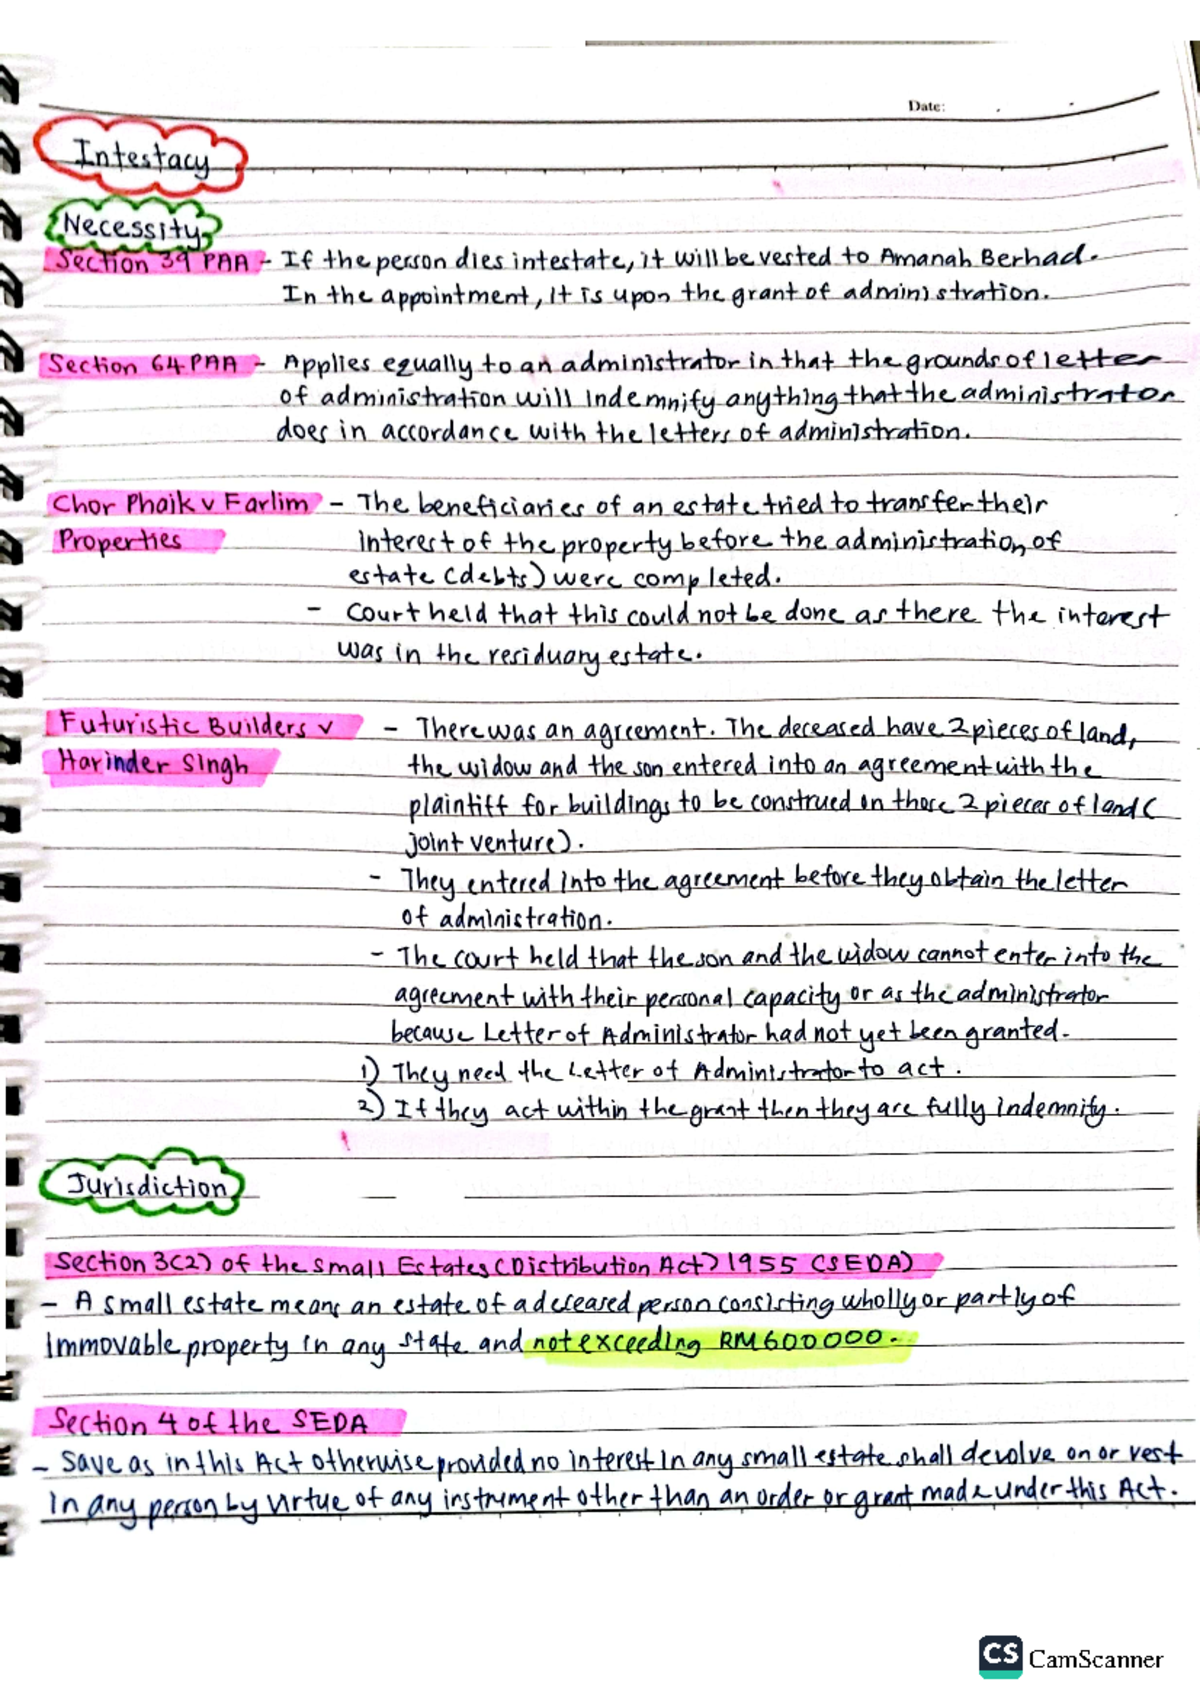 Date:
Intestacy
Necessity
Section 39 PAA - If the person dies intestate, it will be vested to Amanah Berhad.
In the appointment, it is upon the grant of administration.
Section 64 PAA - Applies equally to an administrator in that the grounds of letter
of administration will indemnify anything that the administrator
does in accordance with the letters of administration.
Chor Phaik v Farlim - The beneficiaries of an estate tried to transfer their
Properties interest of the property before the administration of
estate (debts) were completed.
- Court held that this could not be done as there the interest
was in the residuary estate.
Futuristic Builders v - There was an agreement. The deceased have 2 pieces of land,
Harinder Singh the widow and the son entered into an agreement with the
plaintiff for buildings to be construed on those 2 pieces of land (
joint venture).
- They entered into the agreement before they obtain the letter
of administration.
- The court held that the son and the widow cannot enter into the
agreement with their personal capacity or as the administrator
because Letter of Administrator had not yet been granted.
1) They need the Letter of Administrator to act.
2) If they act within the grant then they are fully indemnify.
Jurisdiction
Section 3(2) of the Small Estates (Distribution Act) 1955 (SEDA)
- A small estate means an estate of a deceased person consisting wholly or partly of
immovable property in any state and not exceeding RM600000.
Section 4 of the SEDA
- Save as in this Act otherwise provided no interest in any small estate shall devolve on or vest
in any person by virtue of any instrument other than an order or grant made under this Act.
CS CamScanner